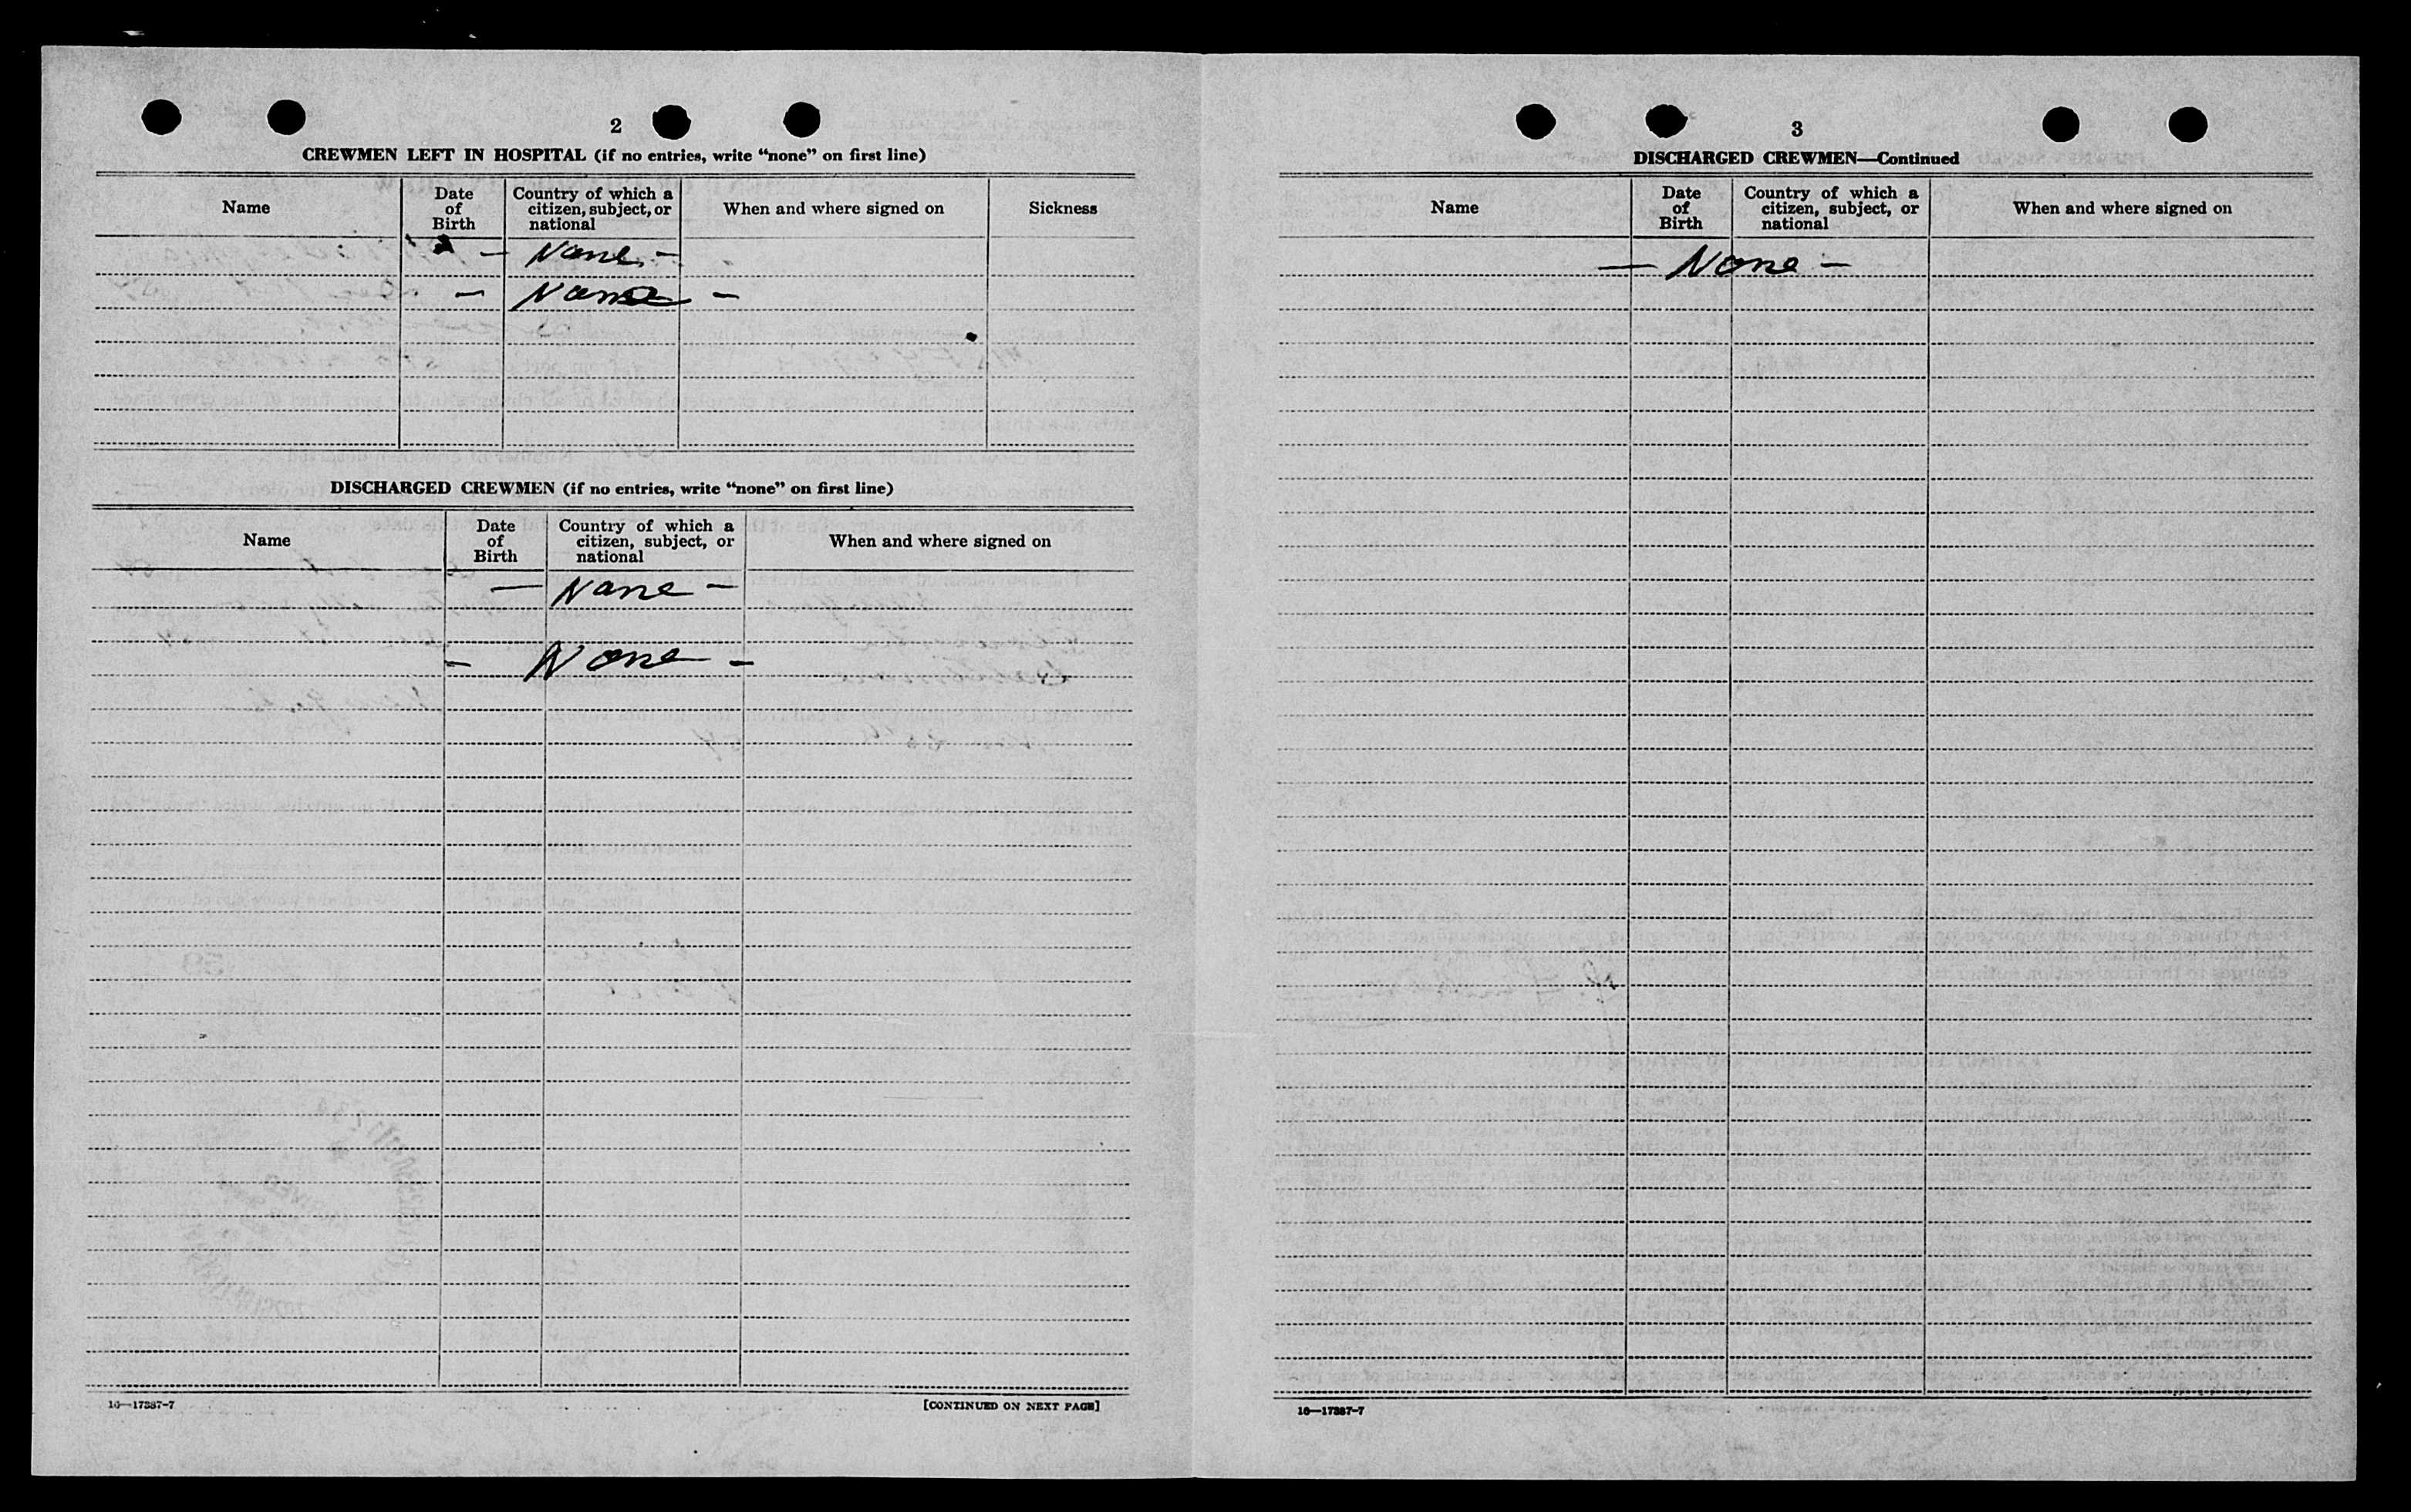 2
CREWMEN LEFT IN HOSPITAL (if no entries, write “none” on first line)
Name
Date of Birth
Country of which a citizen, subject, or national
When and where signed on
Sickness
— None —
— None —
DISCHARGED CREWMEN (if no entries, write “none” on first line)
Name
Date of Birth
Country of which a citizen, subject, or national
When and where signed on
— None —
— None —
16—17387-7
[CONTINUED ON NEXT PAGE]
3
DISCHARGED CREWMEN—Continued
Name
Date of Birth
Country of which a citizen, subject, or national
When and where signed on
— None —
16—17387-7